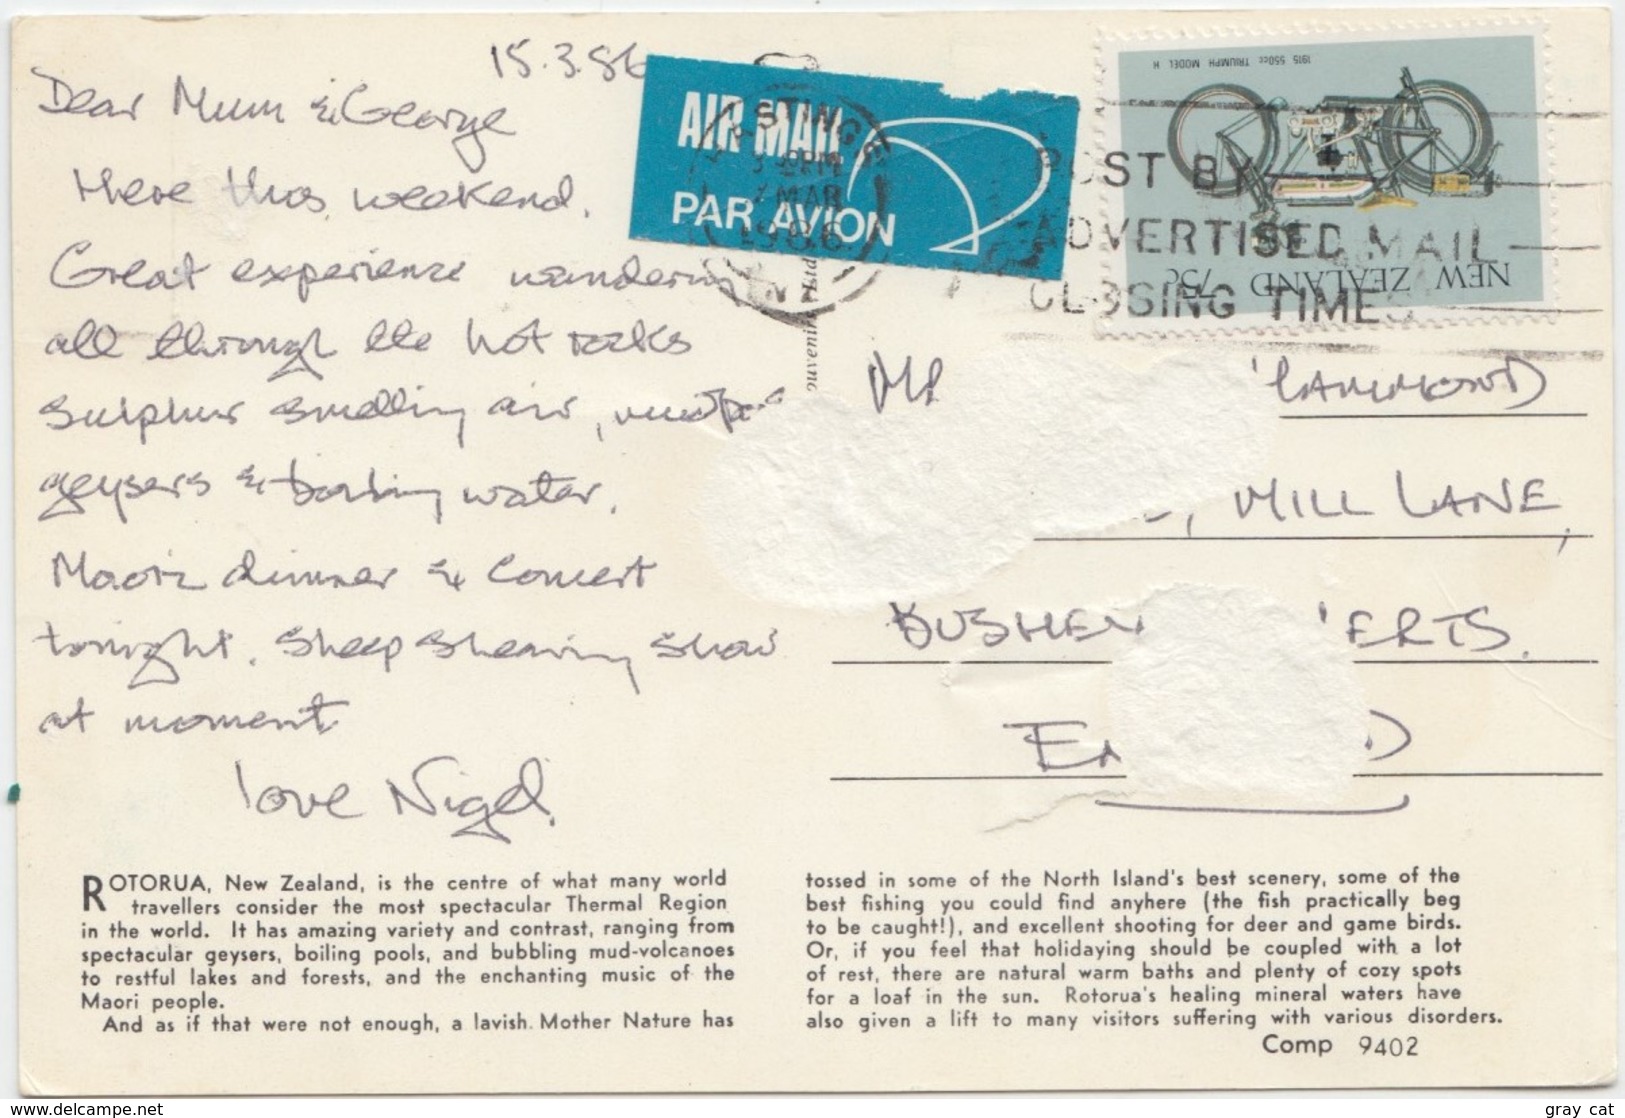 15.3.86
Dear Mum & George
Here this weekend.
Great experience wandering
all through the hot rocks
sulphur smelling air,
geysers & boiling water.
Maori dinner & concert
tonight. Sheep shearing show
at moment
love Nigel.
AIR MAIL
PAR AVION
MAR
1986
1915 550cc TRIUMPH MODEL H
NEW ZEALAND 75c
POST BY
ADVERTISED MAIL
CLOSING TIMES
MILL LANE,
ERTS.
ROTORUA, New Zealand, is the centre of what many world
travellers consider the most spectacular Thermal Region
in the world. It has amazing variety and contrast, ranging from
spectacular geysers, boiling pools, and bubbling mud-volcanoes
to restful lakes and forests, and the enchanting music of the
Maori people.
And as if that were not enough, a lavish Mother Nature has
tossed in some of the North Island's best scenery, some of the
best fishing you could find anyhere (the fish practically beg
to be caught!), and excellent shooting for deer and game birds.
Or, if you feel that holidaying should be coupled with a lot
of rest, there are natural warm baths and plenty of cozy spots
for a loaf in the sun. Rotorua's healing mineral waters have
also given a lift to many visitors suffering with various disorders.
Comp 9402
www.delcampe.net
gray cat